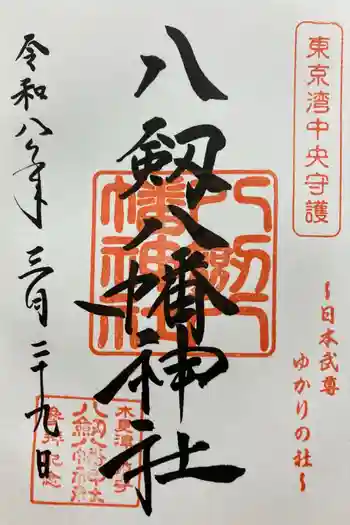 東京湾中央守護
~日本武尊
ゆかりの社~
八剱八幡神社
八剱八幡神社
令和八年三月二十九日
木更津
八剱八幡神社
参拝記念